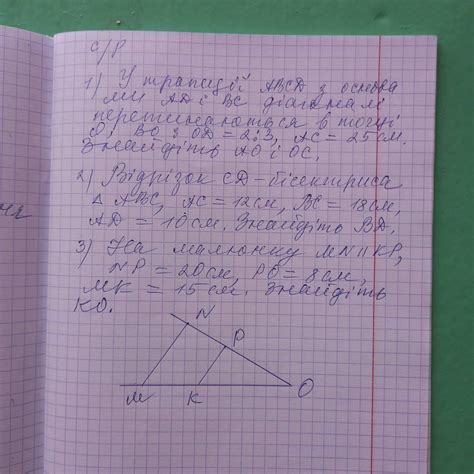 с/р
1) У трапеції ABCD з основа
ми AD і BC діагоналі
перетинаються в точці
O; BO з OD = 2:3, AC = 25 см.
Знайдіть AO і OC.
2) Відрізок CD - бісектриса
△ ABC, AC = 12 см, BC = 18 см,
AD = 10 см. Знайдіть BD.
3) На малюнку MN || KP,
NP = 20 см, PO = 8 см,
MK = 15 см. Знайдіть
KO.
N
P
M
K
O